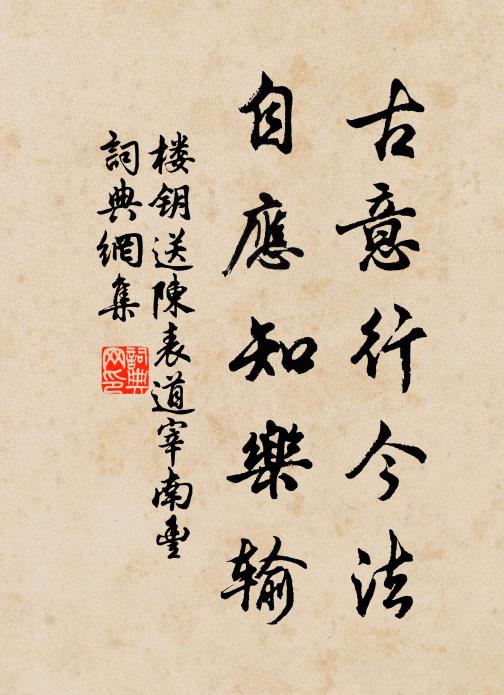 古意行今法
自應知樂输
楼钥送陳表道宰南豐
詞典網集
詞典網印